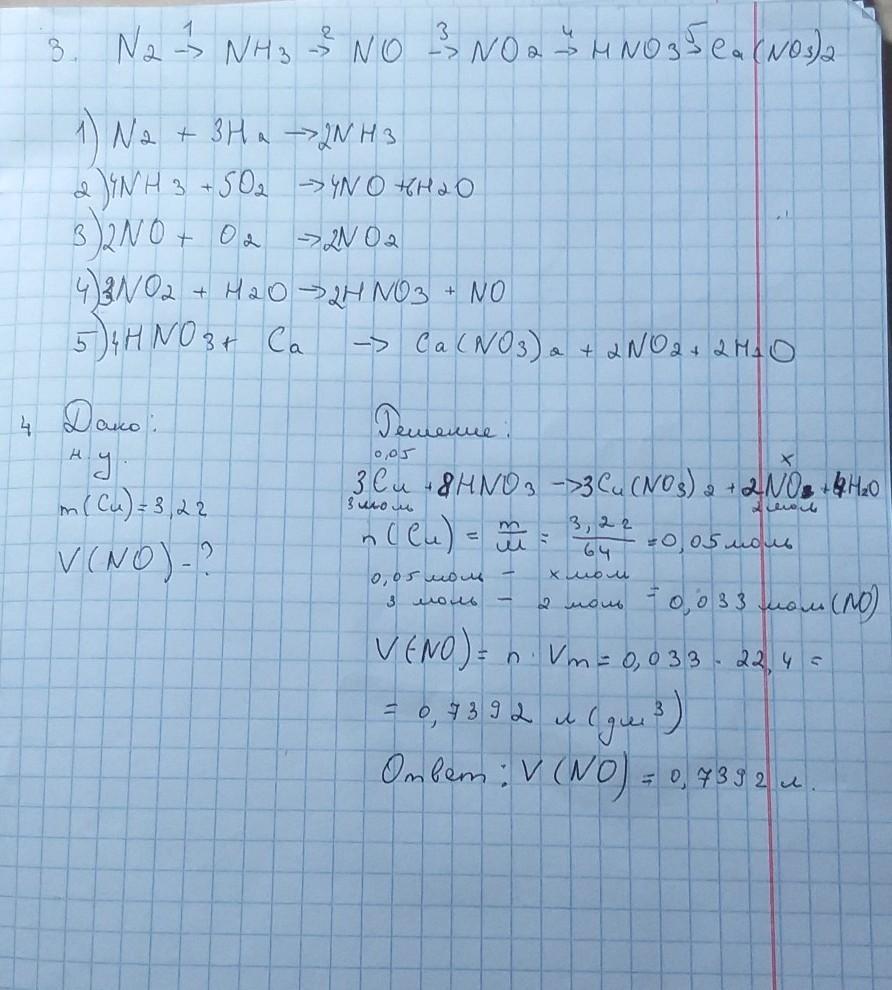 3. N2 1→ NH3 2→ NO 3→ NO2 4→ HNO3 5→ Ca(NO3)2
1) N2 + 3H2 → 2NH3
2) 4NH3 + 5O2 → 4NO + 6H2O
3) 2NO + O2 → 2NO2
4) 3NO2 + H2O → 2HNO3 + NO
5) 4HNO3 + Ca → Ca(NO3)2 + 2NO2 + 2H2O
4 Дано:
н.у.
m(Cu) = 3,2г
V(NO) - ?
Решение:
0,05 x
3Cu + 8HNO3 → 3Cu(NO3)2 + 2NO + 4H2O
3 моль 2 моль
n(Cu) = m/M = 3,2г/64 = 0,05 моль
0,05 моль - x моль
3 моль - 2 моль = 0,033 моль (NO)
V(NO) = n · Vm = 0,033 · 22,4 =
= 0,7392 л (дм³)
Ответ: V(NO) = 0,7392 л.